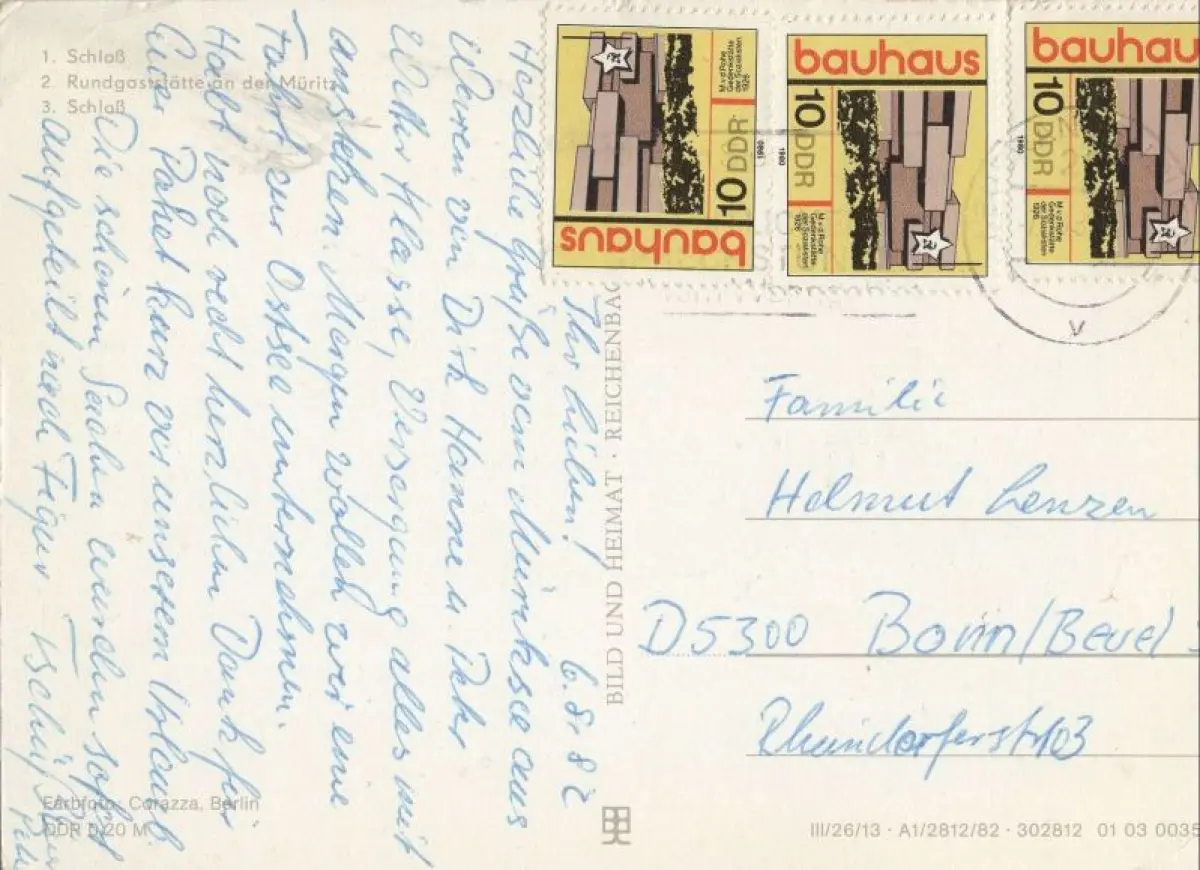 1. Schloß
2. Rundgaststätte an der Müritz
3. Schloß
6. 8. 82
Ihr Lieben!
Herzliche Grüße vom Müritzsee aus
Waren von Dirk Hanne u. Peter
Wetter Klasse, Versorgung alles mit
anstehen. Morgen wollen wir eine
Fahrt zur Ostsee unternehmen.
Habt noch recht herzlichen Dank für
Euer Paket kurz vor unserem Urlaub.
Die schönen Sachen wurden sofort
aufgeteilt nach Figur. Tschüß
Farbfoto: Corazza, Berlin
DDR 0,20 M
BILD UND HEIMAT · REICHENBAC
bauhaus
10 DDR
M v d Rohe
Gedenkstätte
der Sozialisten
1926
1980
bauhaus
10 DDR
M v d Rohe
Gedenkstätte
der Sozialisten
1926
1980
bauhau
10 DDR
M v d Rohe
Gedenkstätte
der Sozialisten
1926
1980
V
Familie
Helmut Lenzen
D5300 Bonn/Beuel
Rhöndorferstr 103
III/26/13 · A1/2812/82 · 302812 01 03 0035